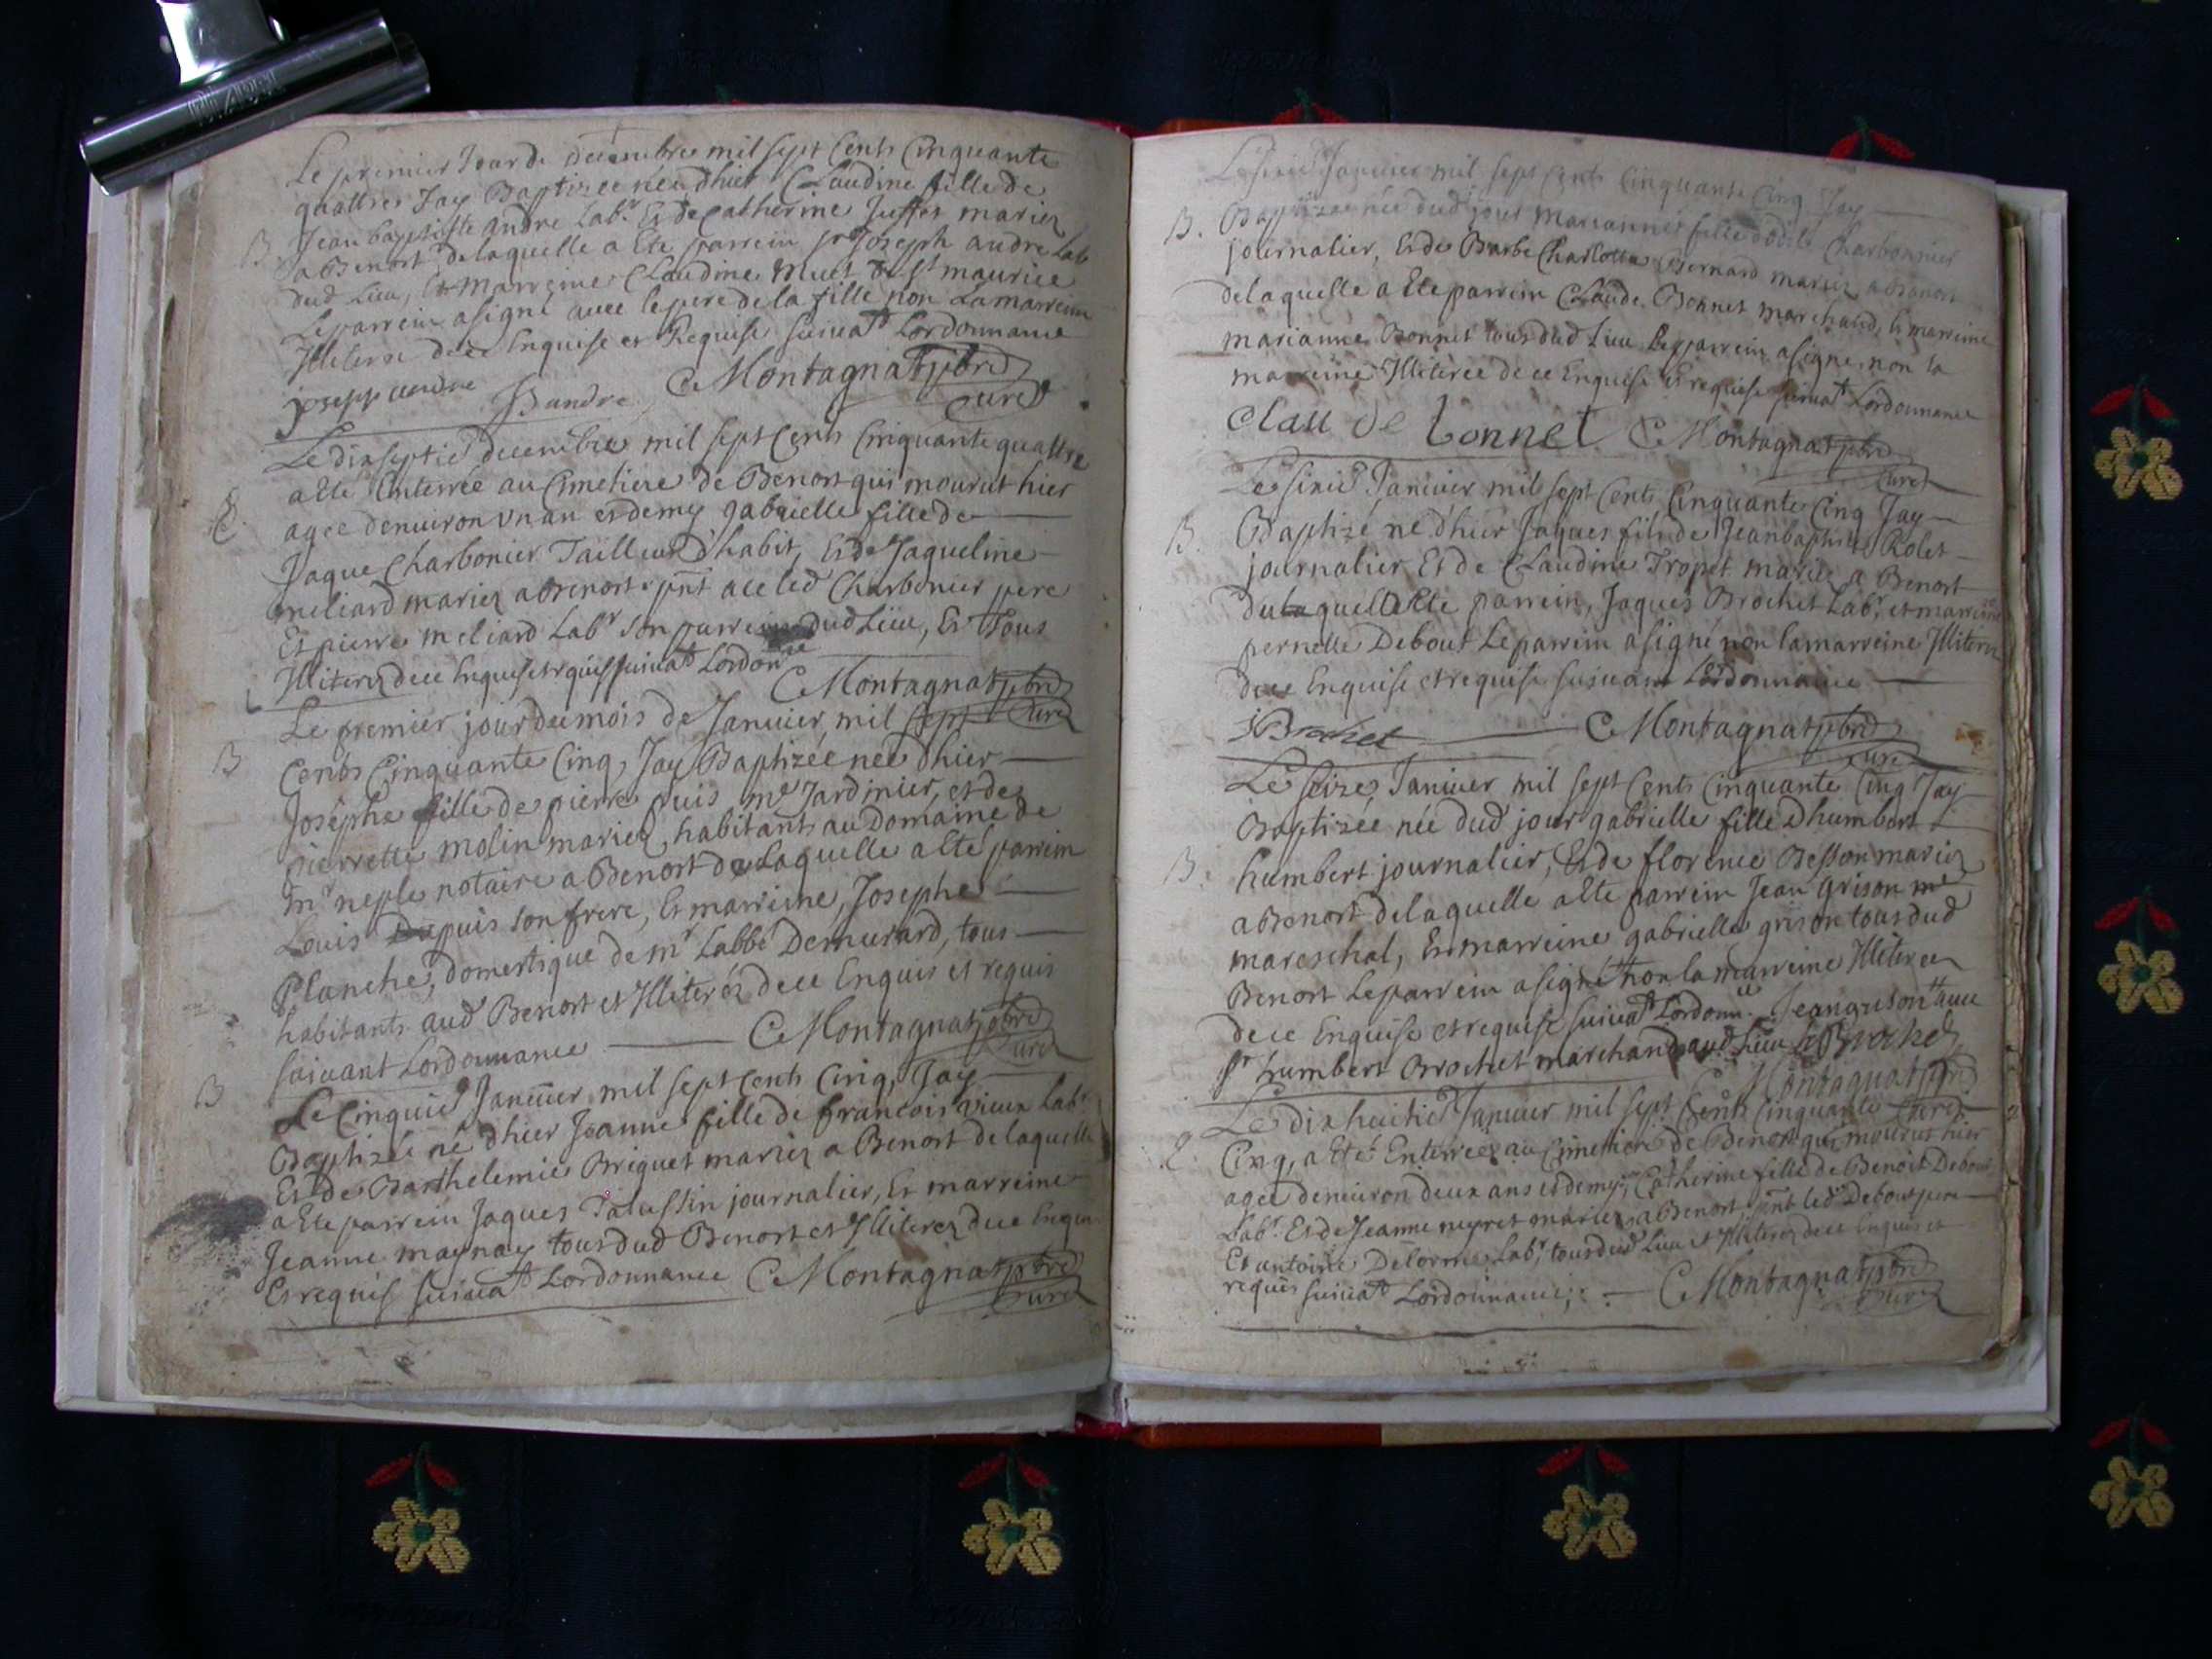 Le premier Jour de decembre mil sept Cents Cinquante
quattre Jay Baptizee neu dhier Claudine fille de
B. Jean baptiste andre Labr. Et de Catherine marier
a Benort delaquelle a Ete parrein sr Joseph andre Lab
dud Lieu, Et Marreine Claudine Muet de st maurice
Le parrein a signé avec le pere de la fille non La marreine
Illiteree dece Enquise et Requise suivat Lordonnance
joseph andre JBandre C Montagnat pbre
Curé
Le dix septie decembre mil sept Cents Cinquante quattre
a Eté Enterrée au Cimetiere de Benort qui mourut hier
E. agee denuiron un an et demy gabrielle fille de
Jaque Charbonier Tailleur dhabit, Et de Jaqueline
meliard mariez a Benort pnt a ce led Charbonier pere
Et pierre meliard Labr son parrein dud Lieu, Et Tous
Illiterez dece Enquis et requis suivat Lordonnce
C Montagnat pbre
Curé
Le premier jour du mois de Januier mil sept
B Cents Cinquante Cinq, Jay Baptizée neé dhier
Josephe fille de pierre puis me Jardinier, et de
pierrette molin mariez, habitants au Domaine de
mr neple notaire a Benort de Laquelle a Eté parrein
Louis puis son frere, Et marreine, Josephe
Planche, domestique de mr Labbé Demurard, tous
habitants aud Benort et Illiteréz dece Enquis et requis
suiuant Lordonnance C Montagnat pbre
Curé
B Le Cinquie Januier mil sept Cents Cinq, Jay
Baptizé né dhier Jeanne fille de francois vieux Labr
Et de Barthelemie Briguet mariez a Benort delaquelle
a Ete parrein Jaques Talussin journalier, Et marreine
Jeanne maynay tous dud Benort et Illiterez dece Enquis
Et requis suiuat Lordonnance C Montagnat pbre
Curé
Le sixie Januier mil sept Cents Cinquante Cinq Jay
B. Baptizee née dud jour Mariannes fille Charbonnier
journalier, Et de Barbe Charlotte Bernard mariez a Benort
delaquelle a Ete parrein Claude Bonnet marchand, Et marreine
marianne Bonnet tous dud Lieu Le parrein a signe, non la
marreine Illiterée dece Enquise Et requise suiuat Lordonnance
Clau de bonnet C Montagnat pbre
Curé
Le sixie Januier mil sept Cents Cinquante Cinq Jay
B. Baptizé ne d'hier Jaques fils de Jean baptiste Rolet
journalier Et de Claudine Tropet mariez a Benort
duquel a Ete parrein, Jaques Brochet Labr, et marreine
pernette Debout Le parrein a signé non la marreine Illiteree
dece Enquise et requise suiuant Lordonnance
JBrochet C Montagnat pbre
Curé
Le seize Januier mil sept Cents Cinquante Cinq Jay
Baptizée née dud jour gabrielle fille Dhumbert
B. humbert journalier, Et de florence Besson mariez
a Benort delaquelle a Ete parrein Jean Grison me
mareschal, Et marreine gabrielle grison tous dud
Benort Le parrein a signé non la marreine Illiteree
dece Enquise et requise suiuat Lordonnce Jean grison auec
sr humbert Brochet marchand aud Lieu hBrochet
C Montagnat pbre
Curé
Le dix huitie Januier mil sept Cents Cinquante
E. Cinq, a Eté Enterrée au Cimetiere de Benort qui mourut hier
agee denuiron deux ans et demy, Catherine fille de Benoit Debout
Labr. Et de Jeanne neyret mariez a Benort, pnt led Debout pere
Et antoine Delorme Labr, tous dud Lieu et Illiterez dece Enquis et
requis suiuat Lordonnance C Montagnat pbre
Curé